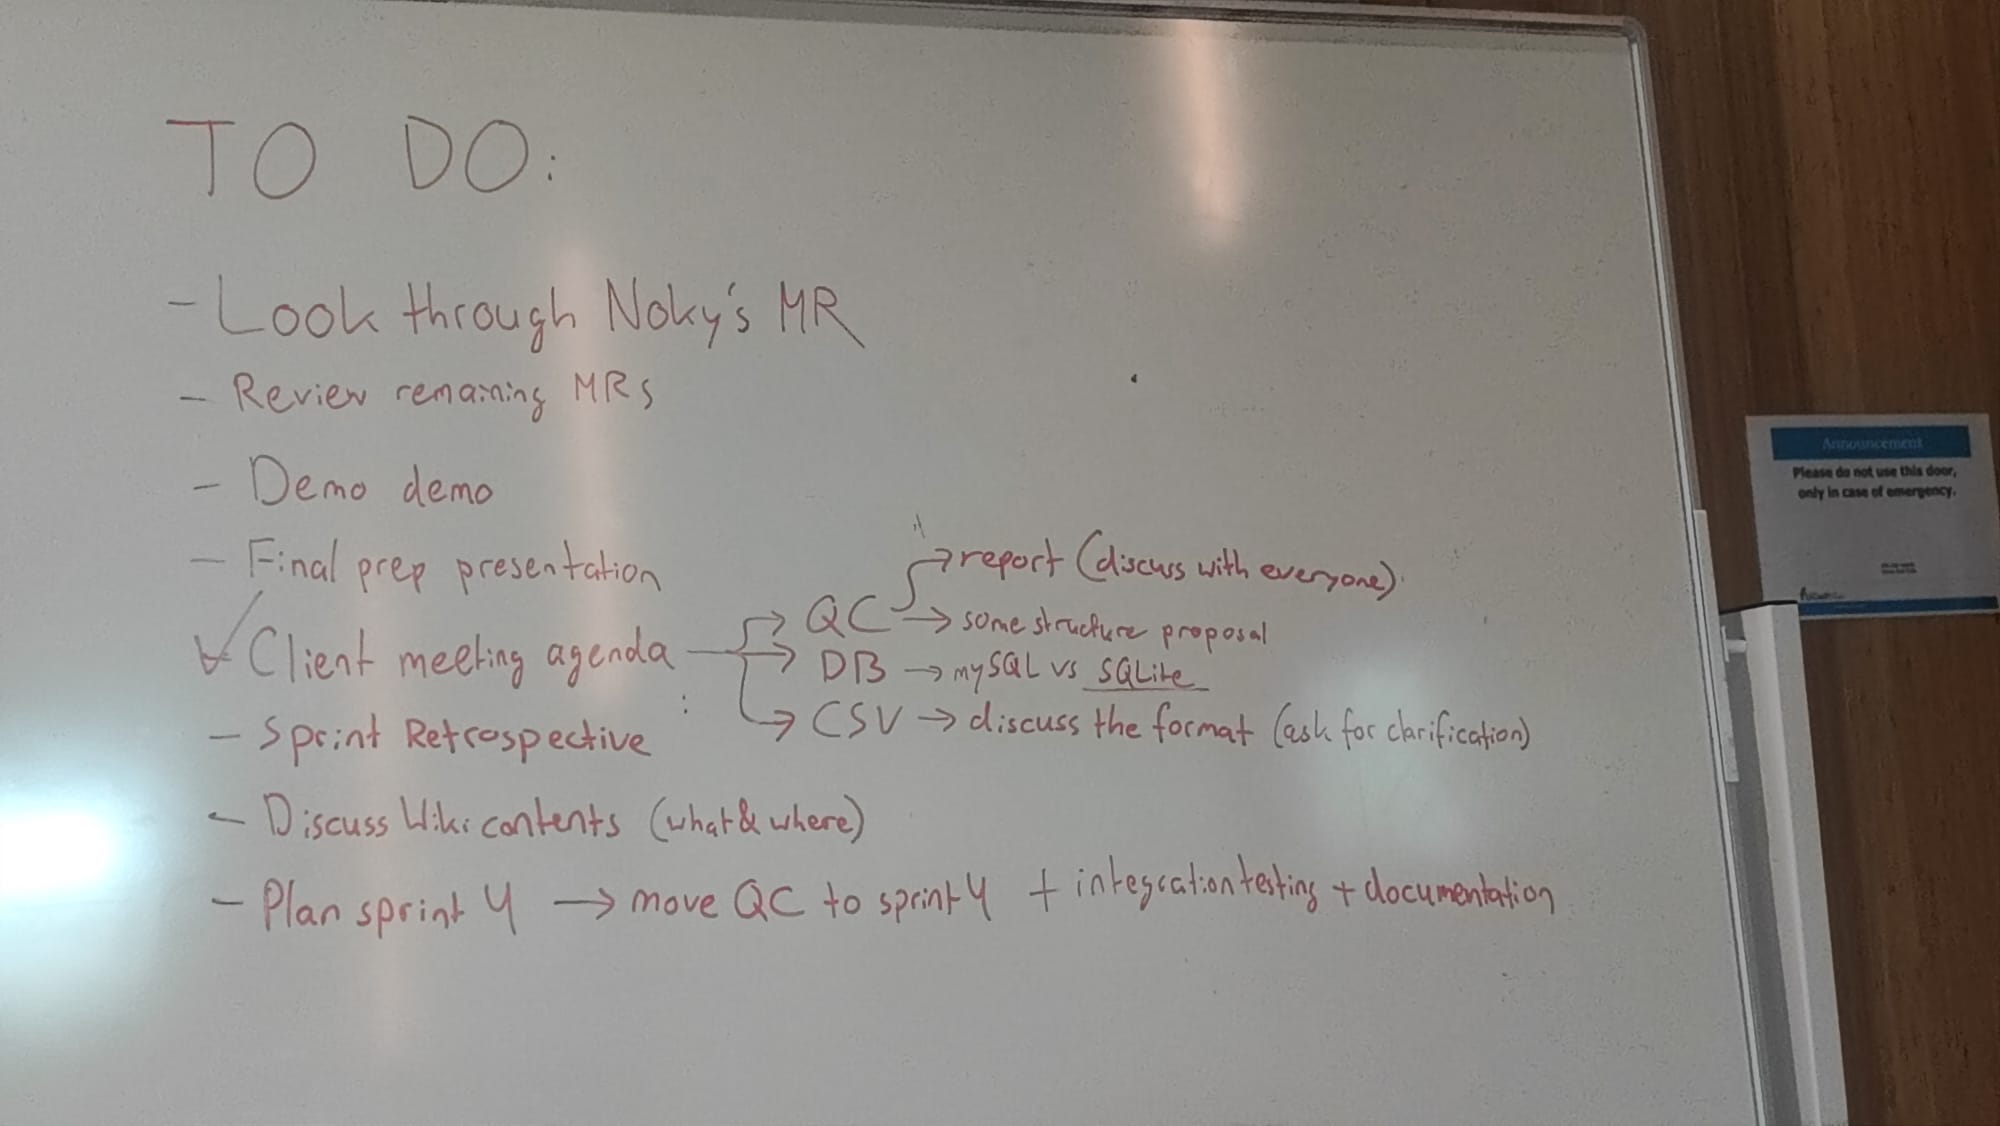 TO DO:
- Look through Noky's MR
- Review remaining MRs
- Demo demo
- Final prep presentation
→ report (discuss with everyone)
→ QC → some structure proposal
✓ Client meeting agenda → DB → mySQL vs SQLite
→ CSV → discuss the format (ask for clarification)
- Sprint Retrospective
- Discuss Wiki contents (what & where)
- Plan sprint 4 → move QC to sprint 4 + integration testing + documentation
Announcement
Please do not use this door,
only in case of emergency.